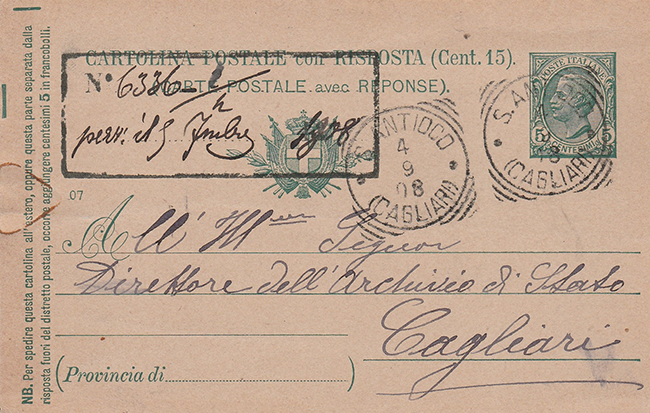 CARTOLINA POSTALE con RISPOSTA (Cent. 15).
(CARTE POSTALE avec RÉPONSE).
N° 6336
perv. il 5 7mbre 1908
POSTE ITALIANE
5 CENTESIMI 5
S. ANTIOCO
4
9
08
(CAGLIARI)
S. ANTIOCO
(CAGLIARI)
07
All' Ill.mo Signor
Direttore dell'Archivio di Stato
Cagliari
(Provincia di
NB. Per spedire questa cartolina all'estero, oppure questa parte separata dalla
risposta fuori del distretto postale, occorre aggiungere centesimi 5 in francobolli.